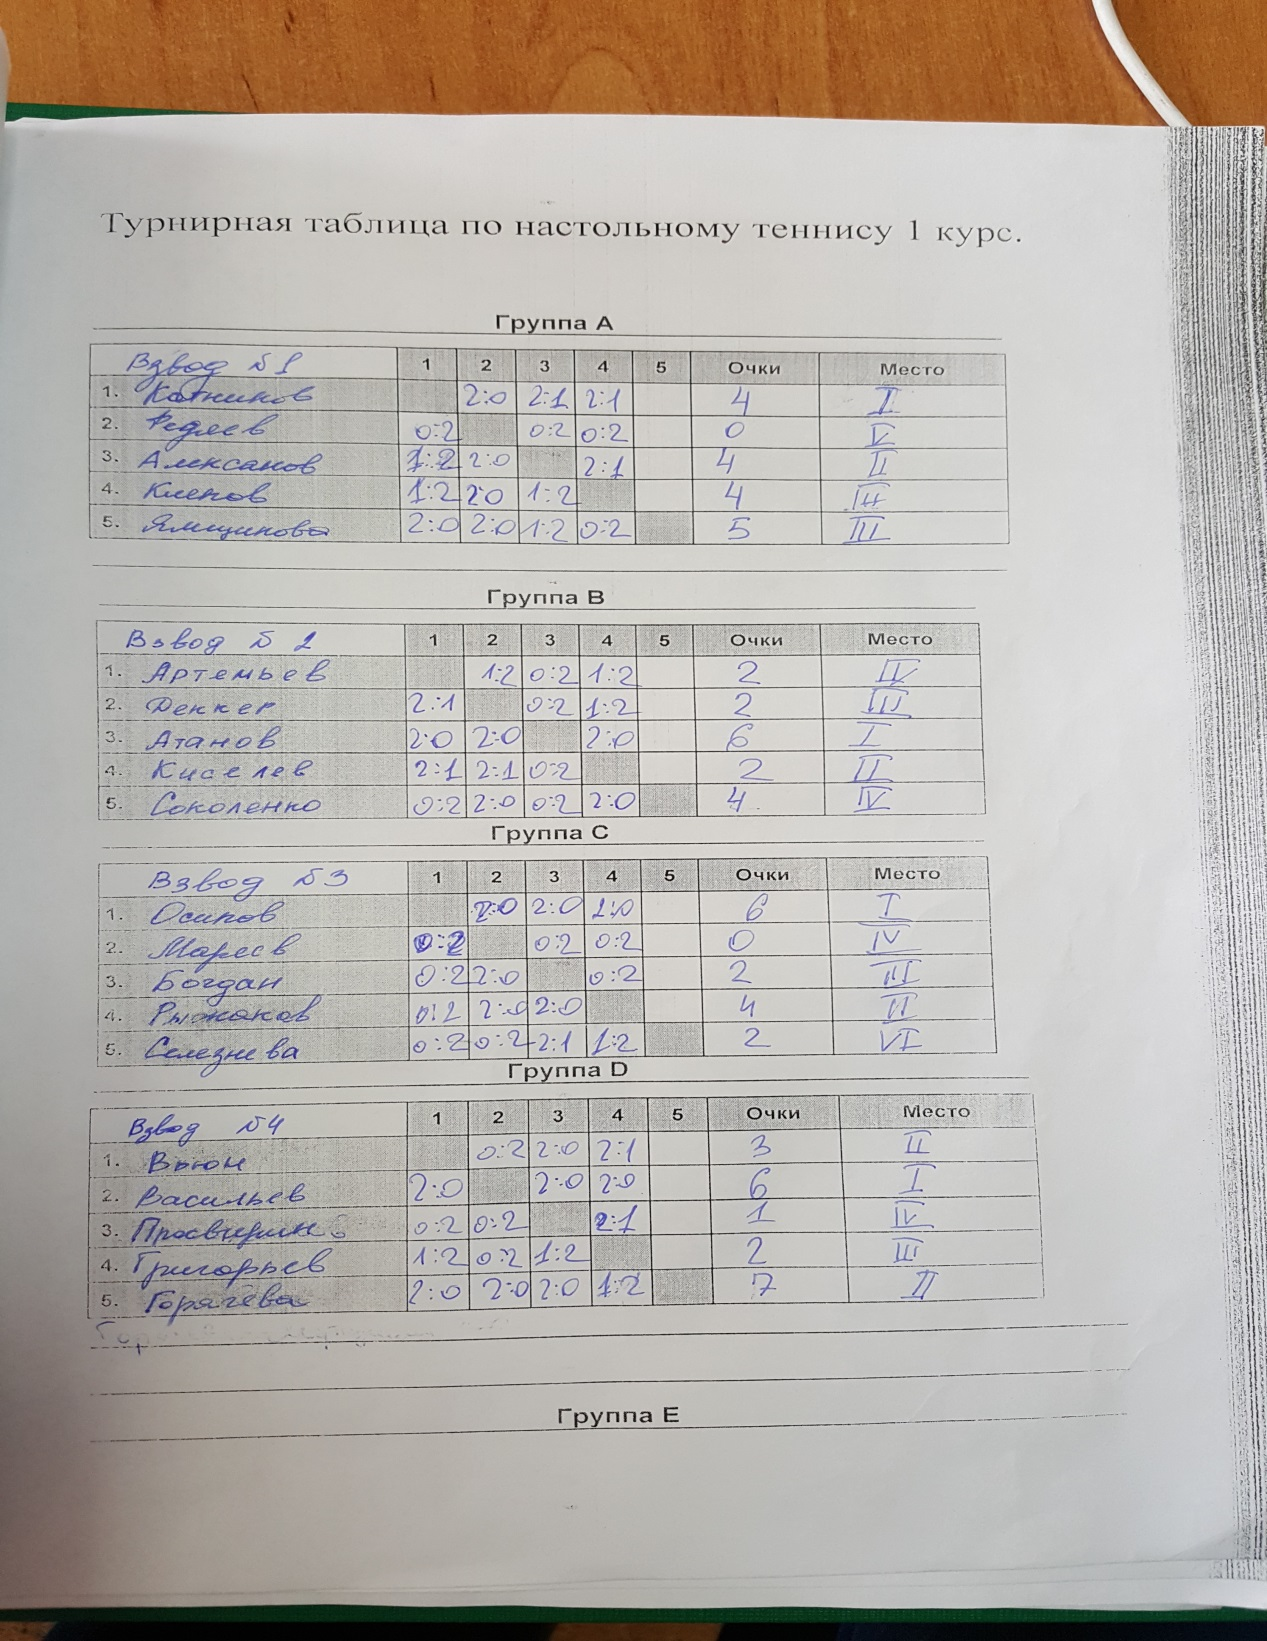 Турнирная таблица по настольному теннису 1 курс.
Группа А
Взвод №1 1 2 3 4 5 Очки Место
1. Катников 2:0 2:1 2:1 4 I
2. Федяев 0:2 0:2 0:2 0 V
3. Алексанов 1:2 2:0 2:1 4 II
4. Клепов 1:2 2:0 1:2 4
5. Ямщикова 2:0 2:0 1:2 0:2 5 III
Группа В
Взвод №2 1 2 3 4 5 Очки Место
1. Артемьев 1:2 0:2 1:2 2 IV
2. Деккер 2:1 0:2 1:2 2 III
3. Атанов 2:0 2:0 2:0 6 I
4. Киселев 2:1 2:1 0:2 2 II
5. Соколенко 0:2 2:0 0:2 2:0 4 IV
Группа С
Взвод №3 1 2 3 4 5 Очки Место
1. Осипов 2:0 2:0 2:0 6 I
2. Мареев 0:2 0:2 0:2 0 IV
3. Богдан 0:2 2:0 0:2 2 III
4. Рыжаков 0:2 2:0 2:0 4 II
5. Селезнева 0:2 0:2 2:1 1:2 2 VI
Группа D
Взвод №4 1 2 3 4 5 Очки Место
1. Вьюн 0:2 2:0 2:1 3 II
2. Васильев 2:0 2:0 2:0 6 I
3. 0:2 0:2 2:1 1 IV
4. Григорьев 1:2 0:2 1:2 2 III
5. Горячева 2:0 2:0 2:0 1:2 7 II
Группа Е